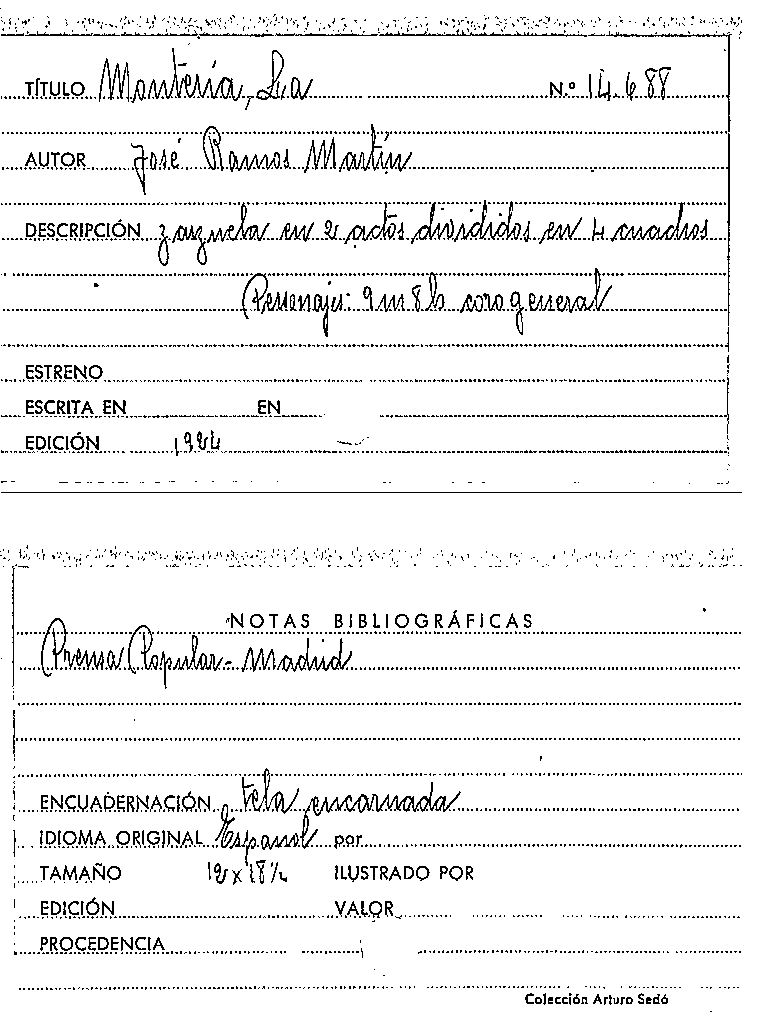 TÍTULO Montería, La N.º 14.688
AUTOR José Ramos Martín
DESCRIPCIÓN zarzuela en 2 actos divididos en 4 cuadros
Personajes: 9 m 8 h coro general
ESTRENO
ESCRITA EN EN
EDICIÓN 1924
NOTAS BIBLIOGRÁFICAS
Prensa Popular - Madrid
ENCUADERNACIÓN tela encarnada
IDIOMA ORIGINAL Español por
TAMAÑO 12 x 18½ ILUSTRADO POR
EDICIÓN VALOR
PROCEDENCIA
Colección Arturo Sedó